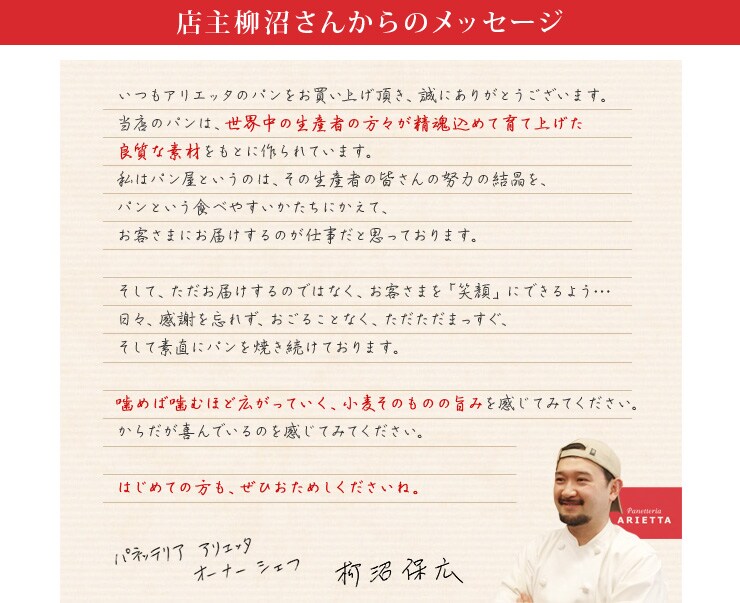 店主柳沼さんからのメッセージ
いつもアリエッタのパンをお買い上げ頂き、誠にありがとうございます。
当店のパンは、世界中の生産者の方々が精魂込めて育て上げた
良質な素材をもとに作られています。
私はパン屋というのは、その生産者の皆さんの努力の結晶を、
パンという食べやすいかたちにかえて、
お客さまにお届けするのが仕事だと思っております。
そして、ただお届けするのではなく、お客さまを「笑顔」にできるよう…
日々、感謝を忘れず、おごることなく、ただただまっすぐ、
そして素直にパンを焼き続けております。
噛めば噛むほど広がっていく、小麦そのものの旨みを感じてみてください。
からだが喜んでいるのを感じてみてください。
はじめての方も、ぜひおためしくださいね。
Panetteria
ARIETTA
パネッテリア アリエッタ
オーナーシェフ 柳沼保広